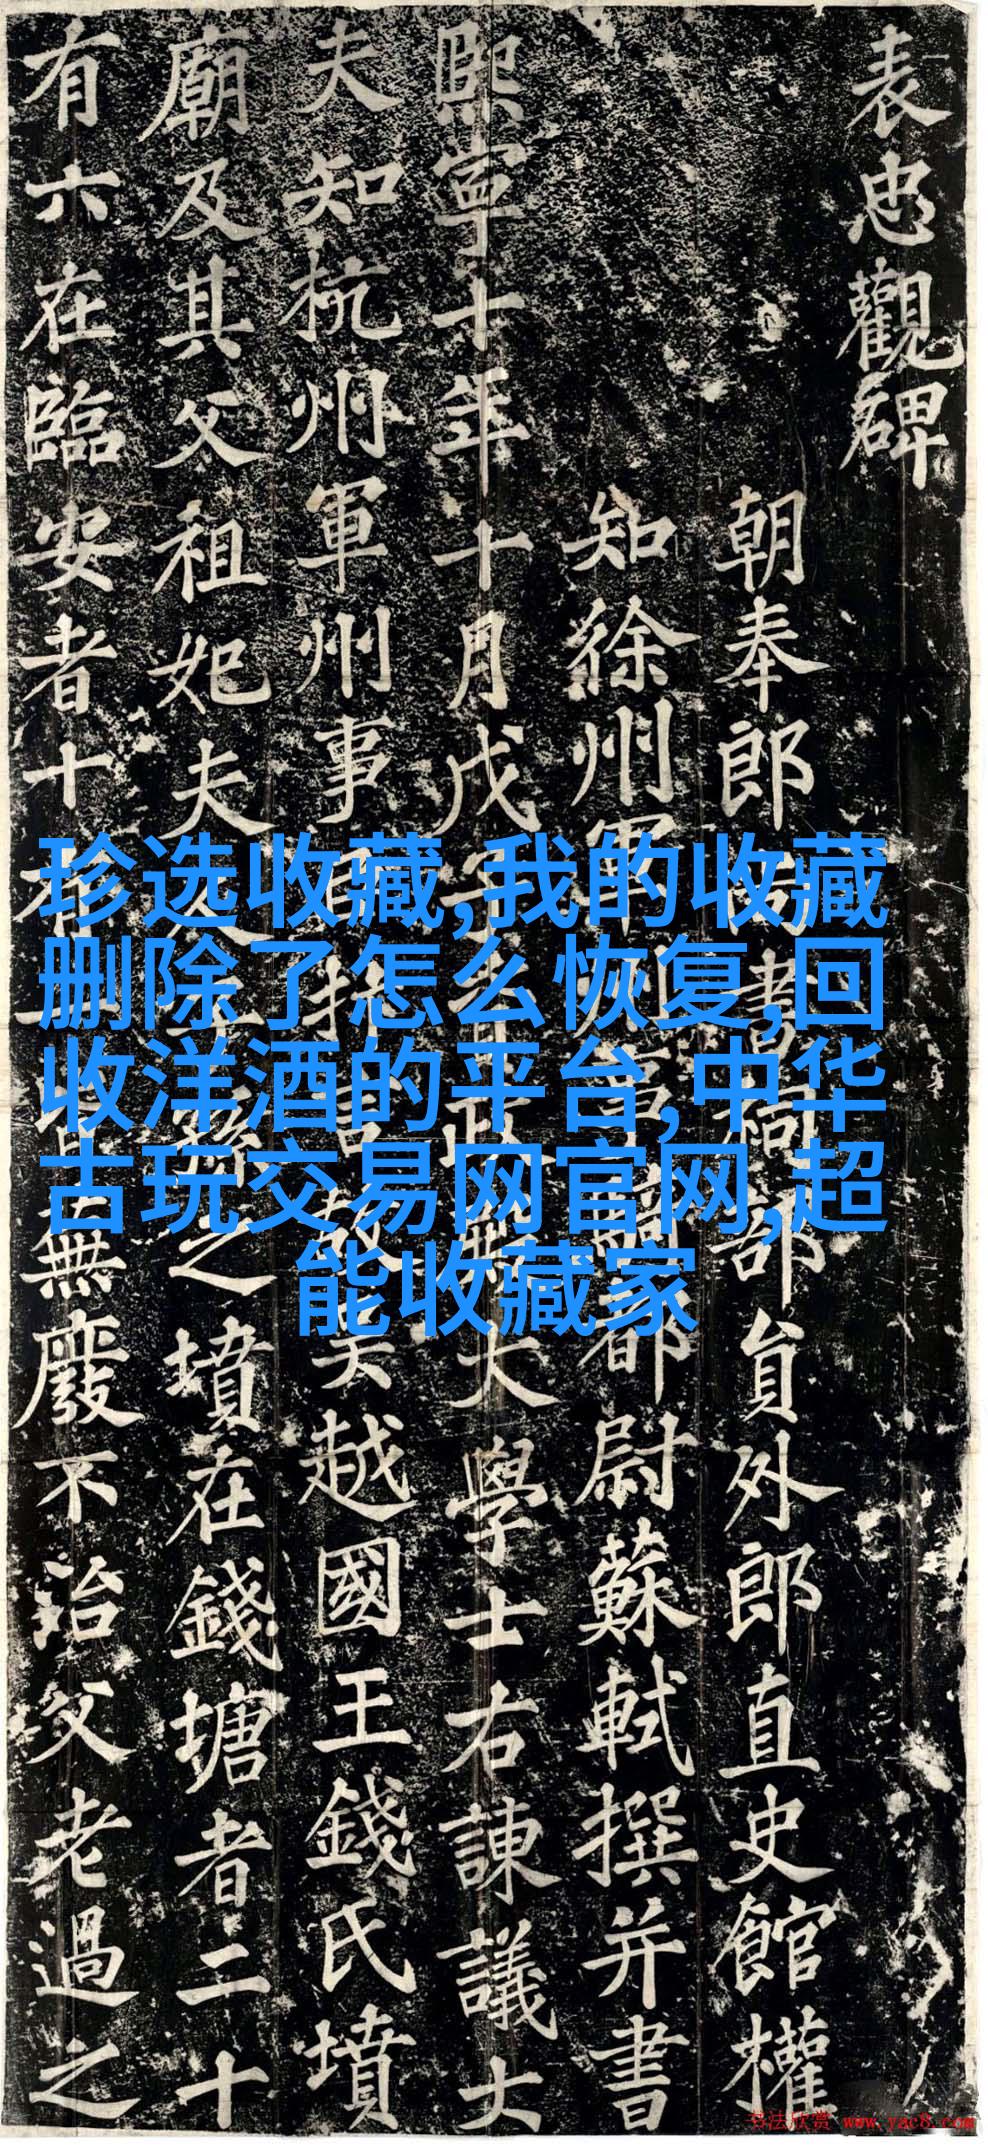 表忠觀碑
朝奉郎尚書祠部員外郎直史館權
知徐州軍州事騎都尉蘇軾撰并書
熙寧十年十月戊子資政殿大學士右諫議大
夫知杭州軍州事臣抃言故吳越國王錢氏墳
廟及其父祖妃夫人子孫之墳在錢塘者二十
有六在臨安者十有一皆蕪廢不治父老過之
珍选收藏,我的收藏
删除了怎么恢复,回
收洋酒的平台,中华
古玩交易网官网,超
能收藏家
书法欣赏 www.yac8.com